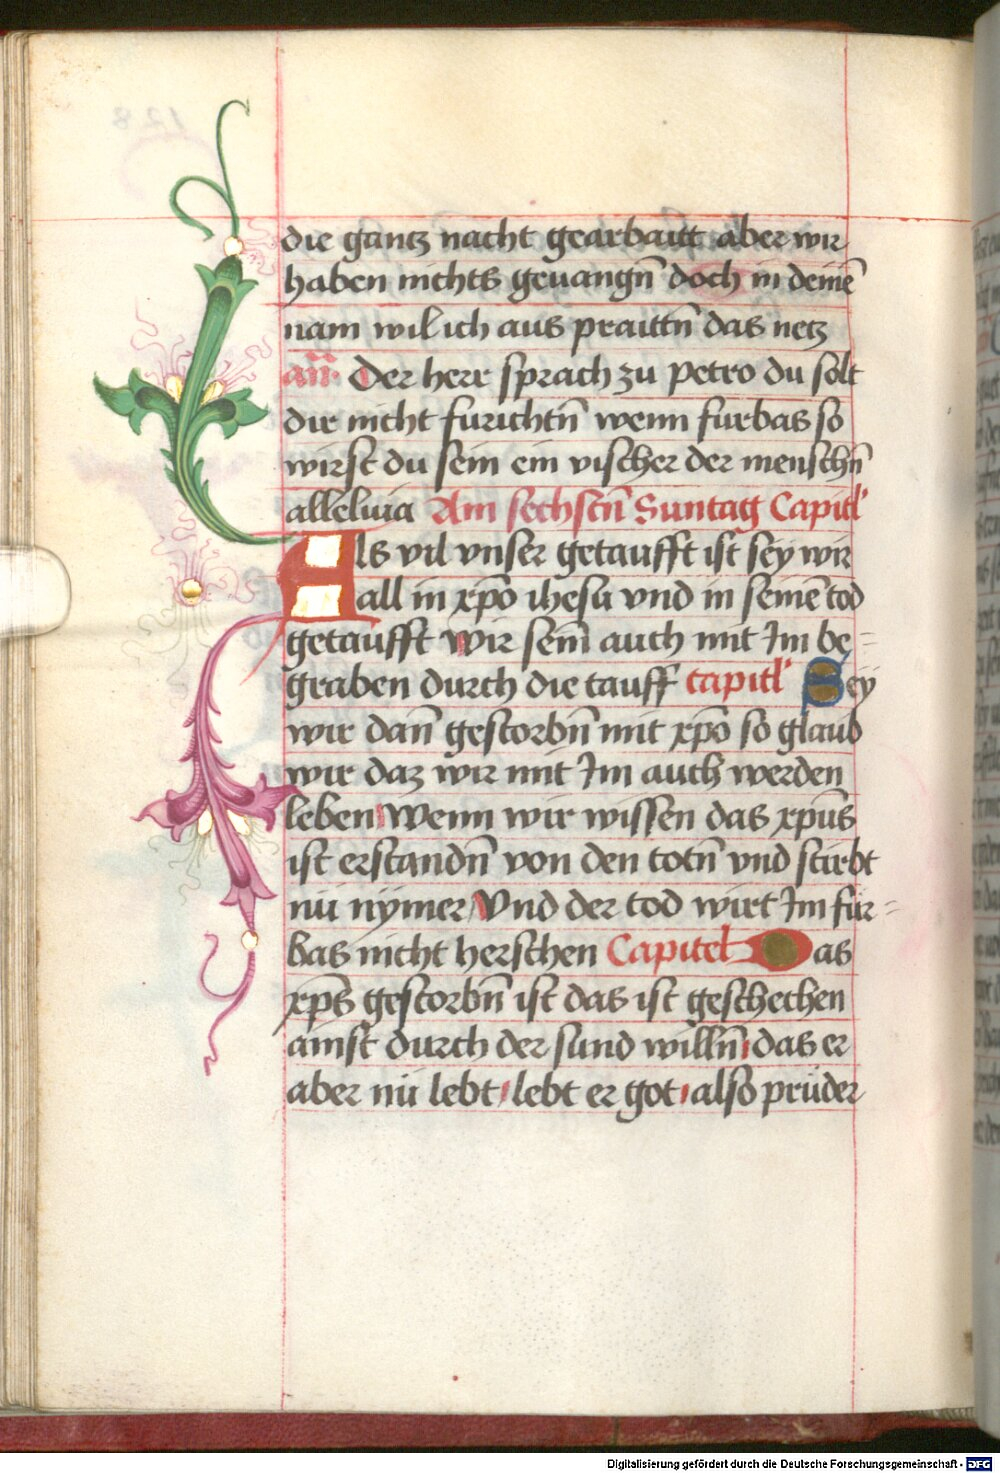 die gantz nacht gearbaitt aber wir
haben nichts geuangn̄ doch in deinē
nam wil ich aus praittn̄ das netz
an̄. Der herr sprach zu petro du solt
dir nicht furichtn̄ wenn furbas so
wirst du sein ein vischer der menschn̄
alleluia Am sechstn̄ Suntag Capitl'
Als vil vnser getaufft ist sey wir
all in xp̄o ihesu vnd in seinē tod
getaufft wir sein auch mit Im be=
graben durch die tauff capitl' Sey
wir dan̄ gestorbn̄ mit xp̄o so glaub
wir daz wir mit Im auch werden
leben wenn wir wissen das xp̄us
ist erstandn̄ von den totn̄ vnd stirbt
nü nymer Vnd der tod wirt Im fur=
bas nicht herschen Capitel Das
xp̄s gestorbn̄ ist das ist geschechen
ainst durch der sund willn̄ das er
aber nü lebt lebt er got also prüder
Digitalisierung gefördert durch die Deutsche Forschungsgemeinschaft - DFG